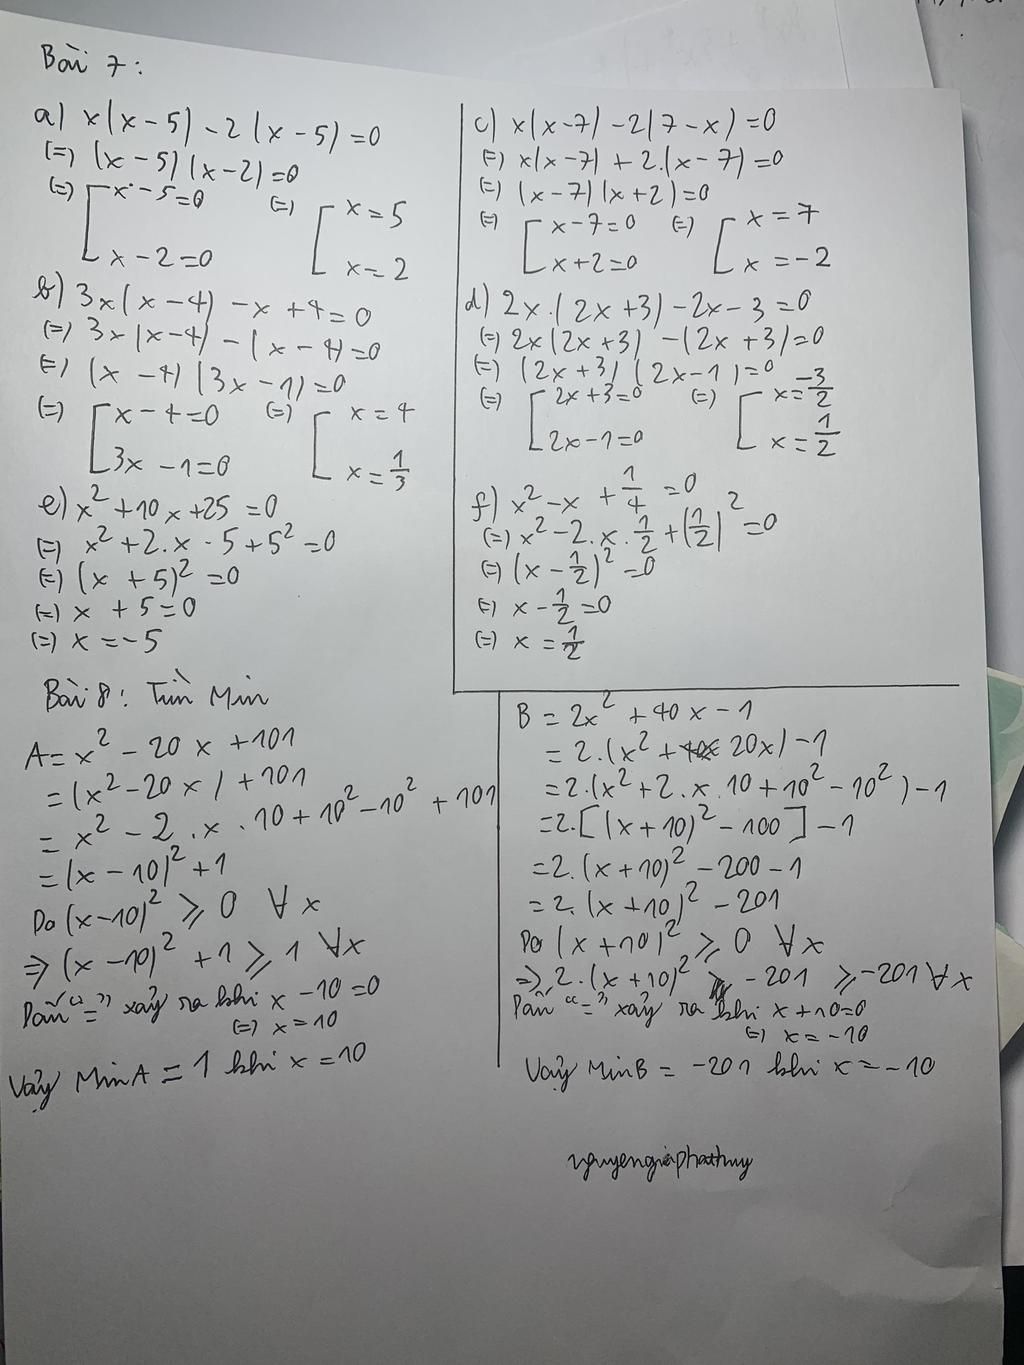 Bài 7:
a) x(x-5) - 2(x-5) = 0
(=) (x-5)(x-2) = 0
(=) [ x-5=0 (=) [ x=5
x-2=0 x=2
b) 3x(x-4) - x + 4 = 0
(=) 3x(x-4) - (x-4) = 0
(=) (x-4)(3x-1) = 0
(=) [ x-4=0 (=) [ x=4
3x-1=0 x=1/3
e) x² + 10x + 25 = 0
(=) x² + 2.x.5 + 5² = 0
(=) (x+5)² = 0
(=) x + 5 = 0
(=) x = -5
c) x(x-7) - 2(7-x) = 0
(=) x(x-7) + 2.(x-7) = 0
(=) (x-7)(x+2) = 0
(=) [ x-7=0 (=) [ x=7
x+2=0 x=-2
d) 2x.(2x+3) - 2x - 3 = 0
(=) 2x(2x+3) - (2x+3) = 0
(=) (2x+3)(2x-1) = 0
(=) [ 2x+3=0 (=) [ x=-3/2
2x-1=0 x=1/2
f) x² - x + 1/4 = 0
(=) x² - 2.x.1/2 + (1/2)² = 0
(=) (x - 1/2)² = 0
(=) x - 1/2 = 0
(=) x = 1/2
Bài 8: Tìm Min
A = x² - 20x + 101
= (x² - 20x) + 101
= x² - 2.x.10 + 10² - 10² + 101
= (x-10)² + 1
Do (x-10)² ⩾ 0 ∀x
⇒ (x-10)² + 1 ⩾ 1 ∀x
Dấu "=" xảy ra khi x - 10 = 0
(=) x = 10
Vậy MinA = 1 khi x = 10
B = 2x² + 40x - 1
= 2.(x² + 20x) - 1
= 2.(x² + 2.x.10 + 10² - 10²) - 1
= 2.[(x+10)² - 100] - 1
= 2.(x+10)² - 200 - 1
= 2.(x+10)² - 201
Do (x+10)² ⩾ 0 ∀x
⇒ 2.(x+10)² - 201 ⩾ -201 ∀x
Dấu "=" xảy ra khi x + 10 = 0
(=) x = -10
Vậy MinB = -201 khi x = -10
nguyengiaphathuy